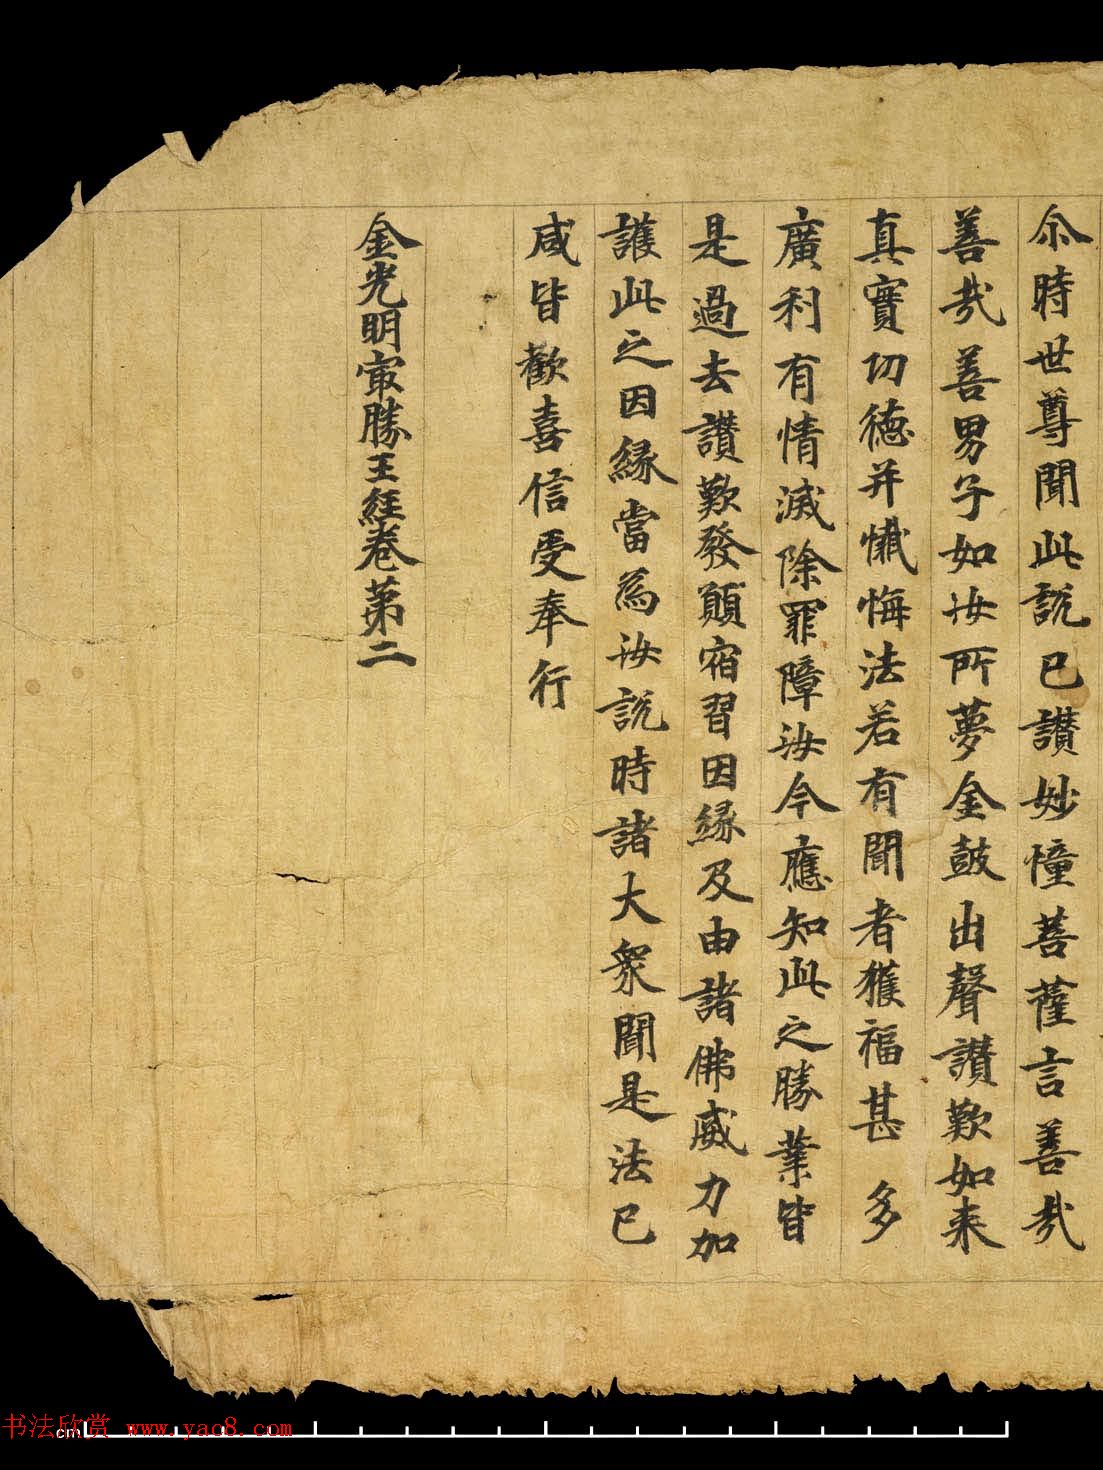 尒時世尊聞此說已讚妙憧菩薩言善哉
善哉善男子如汝所夢金鼓出聲讚歎如来
真實功德并懺悔法若有聞者獲福甚多
廣利有情滅除罪障汝今應知此之勝業皆
是過去讚歎發願宿習因緣及由諸佛威力加
護此之因緣當為汝說時諸大衆聞是法已
咸皆歡喜信受奉行
金光明冣勝王經卷第二
书法欣赏 www.yac8.com
cm